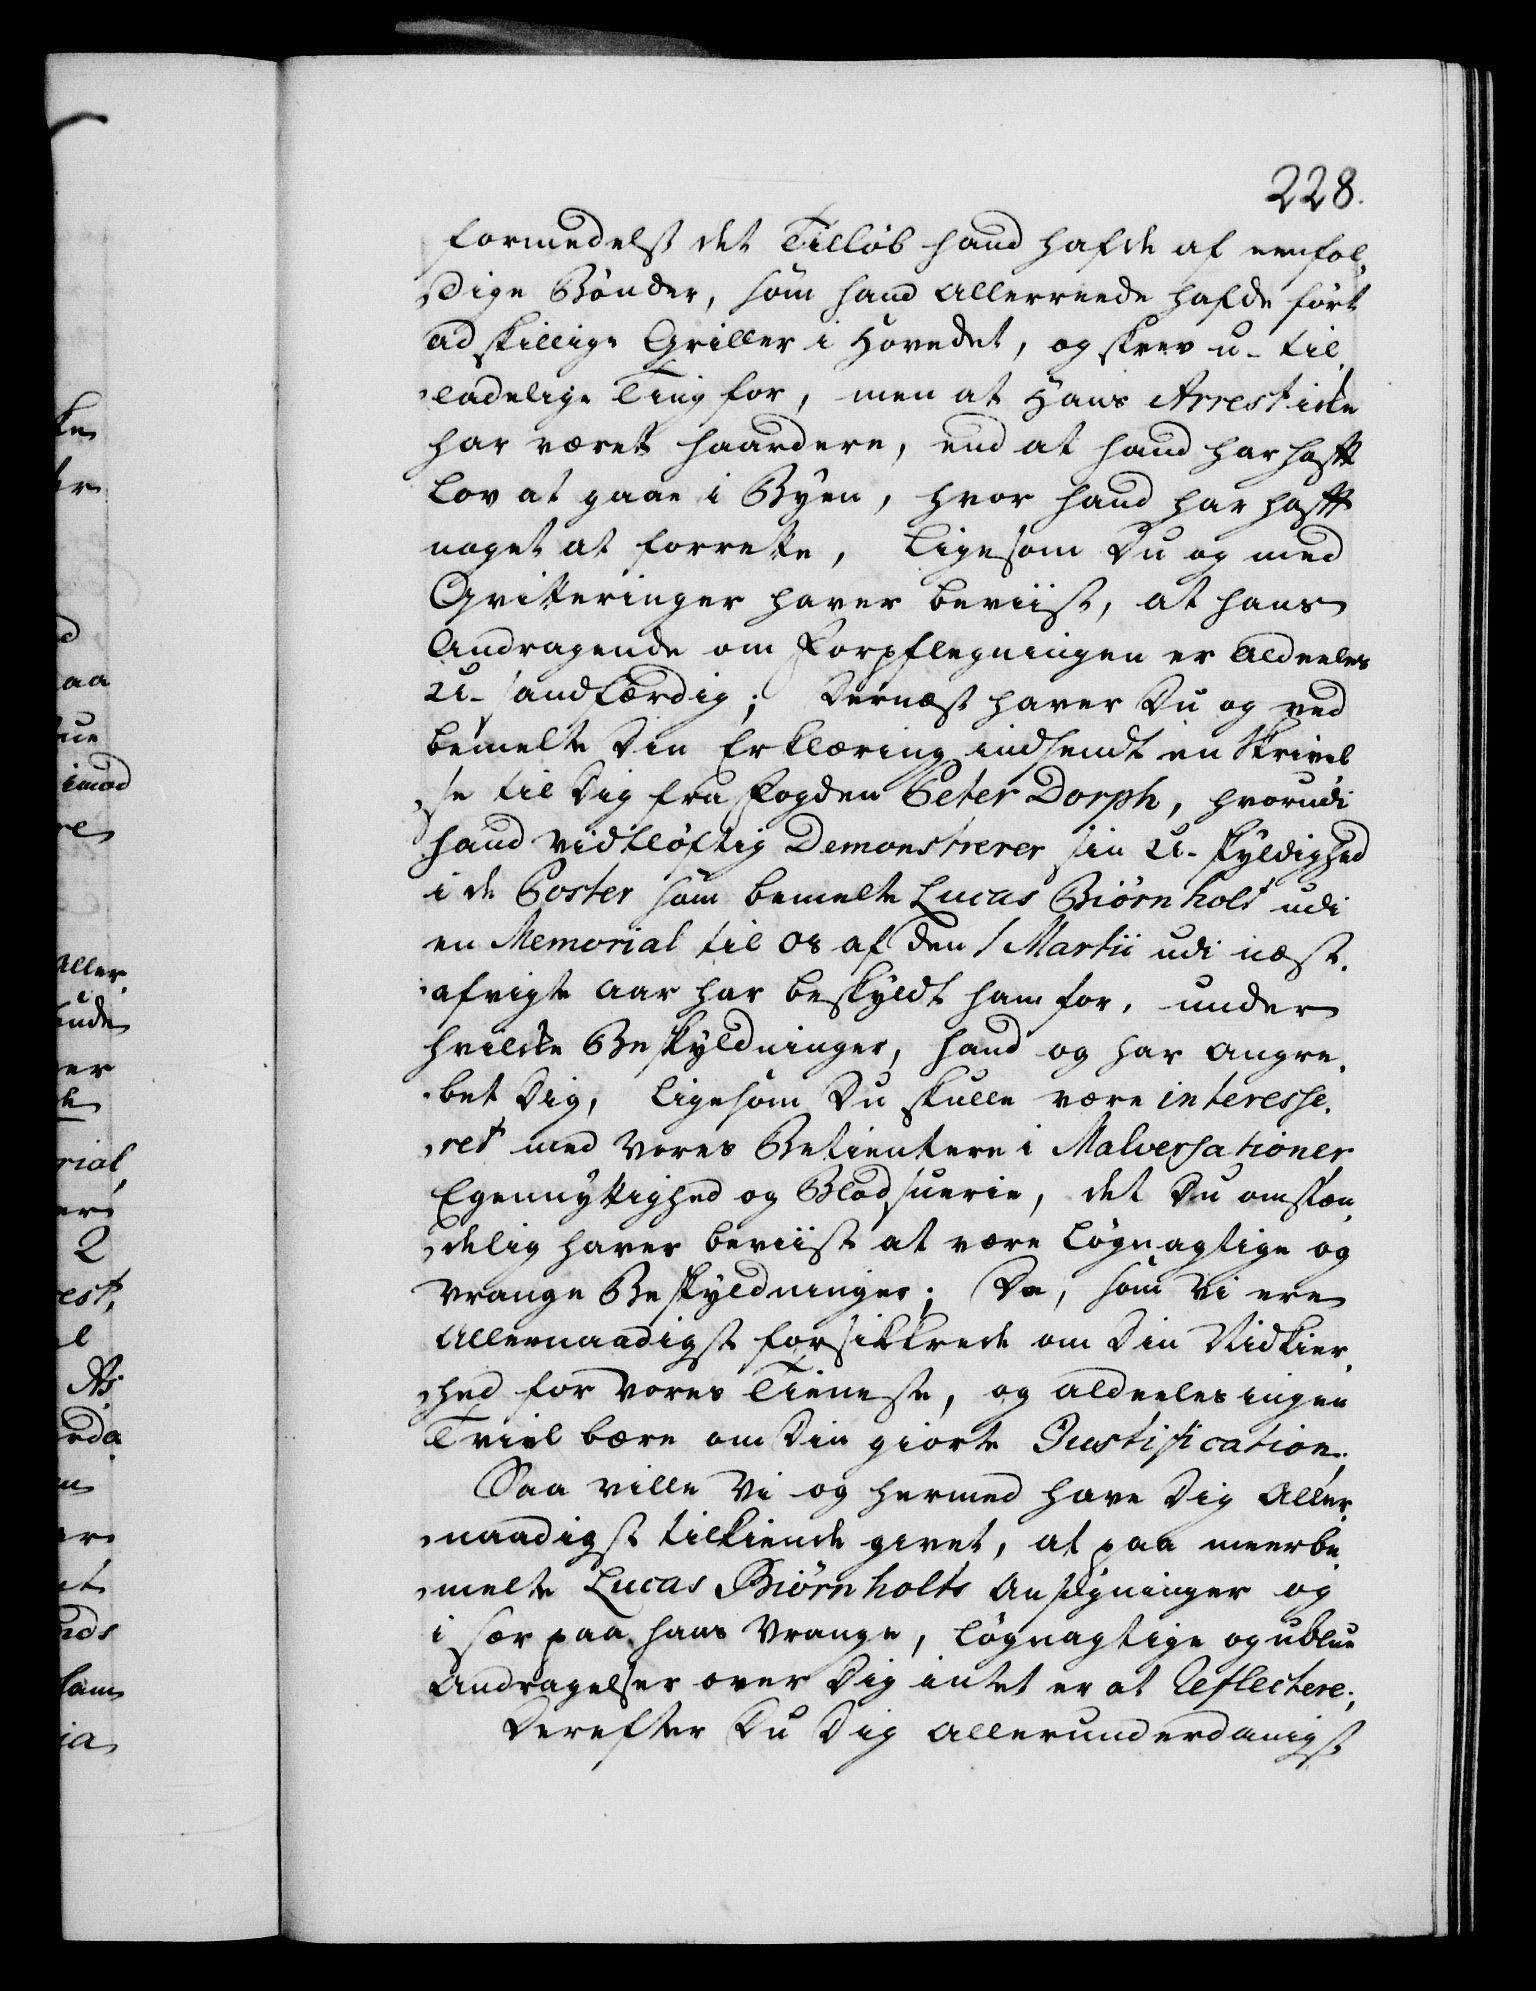 228.
formedelst det Tilløb hand hafde af eenfol-
dige Bønder, som hand allerreede hafde ført
adskillige Griller i Hovedet, og skrev u-til
ladelige Ting for, men at Hans Arrest icke
har været haardere, end at hand har hafft
Lov at gaae i Byen, hvor hand har hafft
noget at forrette, ligesom Du og med
Qvitteringer haver beviist, at hans
Andragende om Forpflegningen er aldeeles
U-sandfærdig; Dernæst haver Du og ved
bemelte Din Erklæring indsendt en Skrivel
se til Dig fra Fogden Peter Dorph, hvorudi
hand vidtløftig Demonstrerer sin U-skyldighed
i de Poster som bemelte Lucas Biørnholt udi
en Memorial til os af den 1 Martii udi næst-
afvigte Aar har beskyldt ham for, under
hvilcke Beskyldninger, hand og har angre-
bet Dig, ligesom Du skulle være interesse-
ret med Vores Betientere i Malversationer
Egennyttighed og Blodsuerie, det Du omstæn-
delig haver beviist at være løgnagtige og
vrange Beskyldninger; Da, som Vi ere
Allernaadigst forsikkrede om Din Nidkier-
hed for Vores Tieneste, og aldeeles ingen
Tviel bære om Din giorte Justification;
Saa ville Vi og hermed have Dig Aller-
naadigst tilkiende givet, at paa meerbe-
melte Lucas Biørnholts Ansøgninger og
i sær paa hans Vrange, løgnagtige og ublue
Andragelser over Dig intet er at Reflectere;
Derefter Du Dig allerunderdanigst